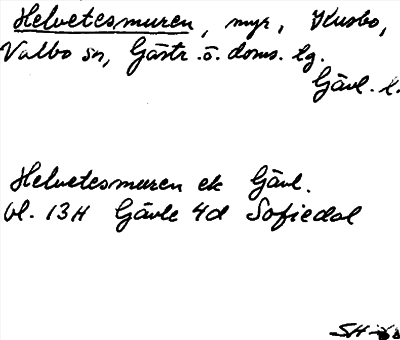 Helvetesmuren, myr, Kusbo,
Valbo sn, Gästr. ö. doms. lg.
Gävl. l.
Helvetesmuren ek Gävl.
bl. 13H Gävle 4d Sofiedal